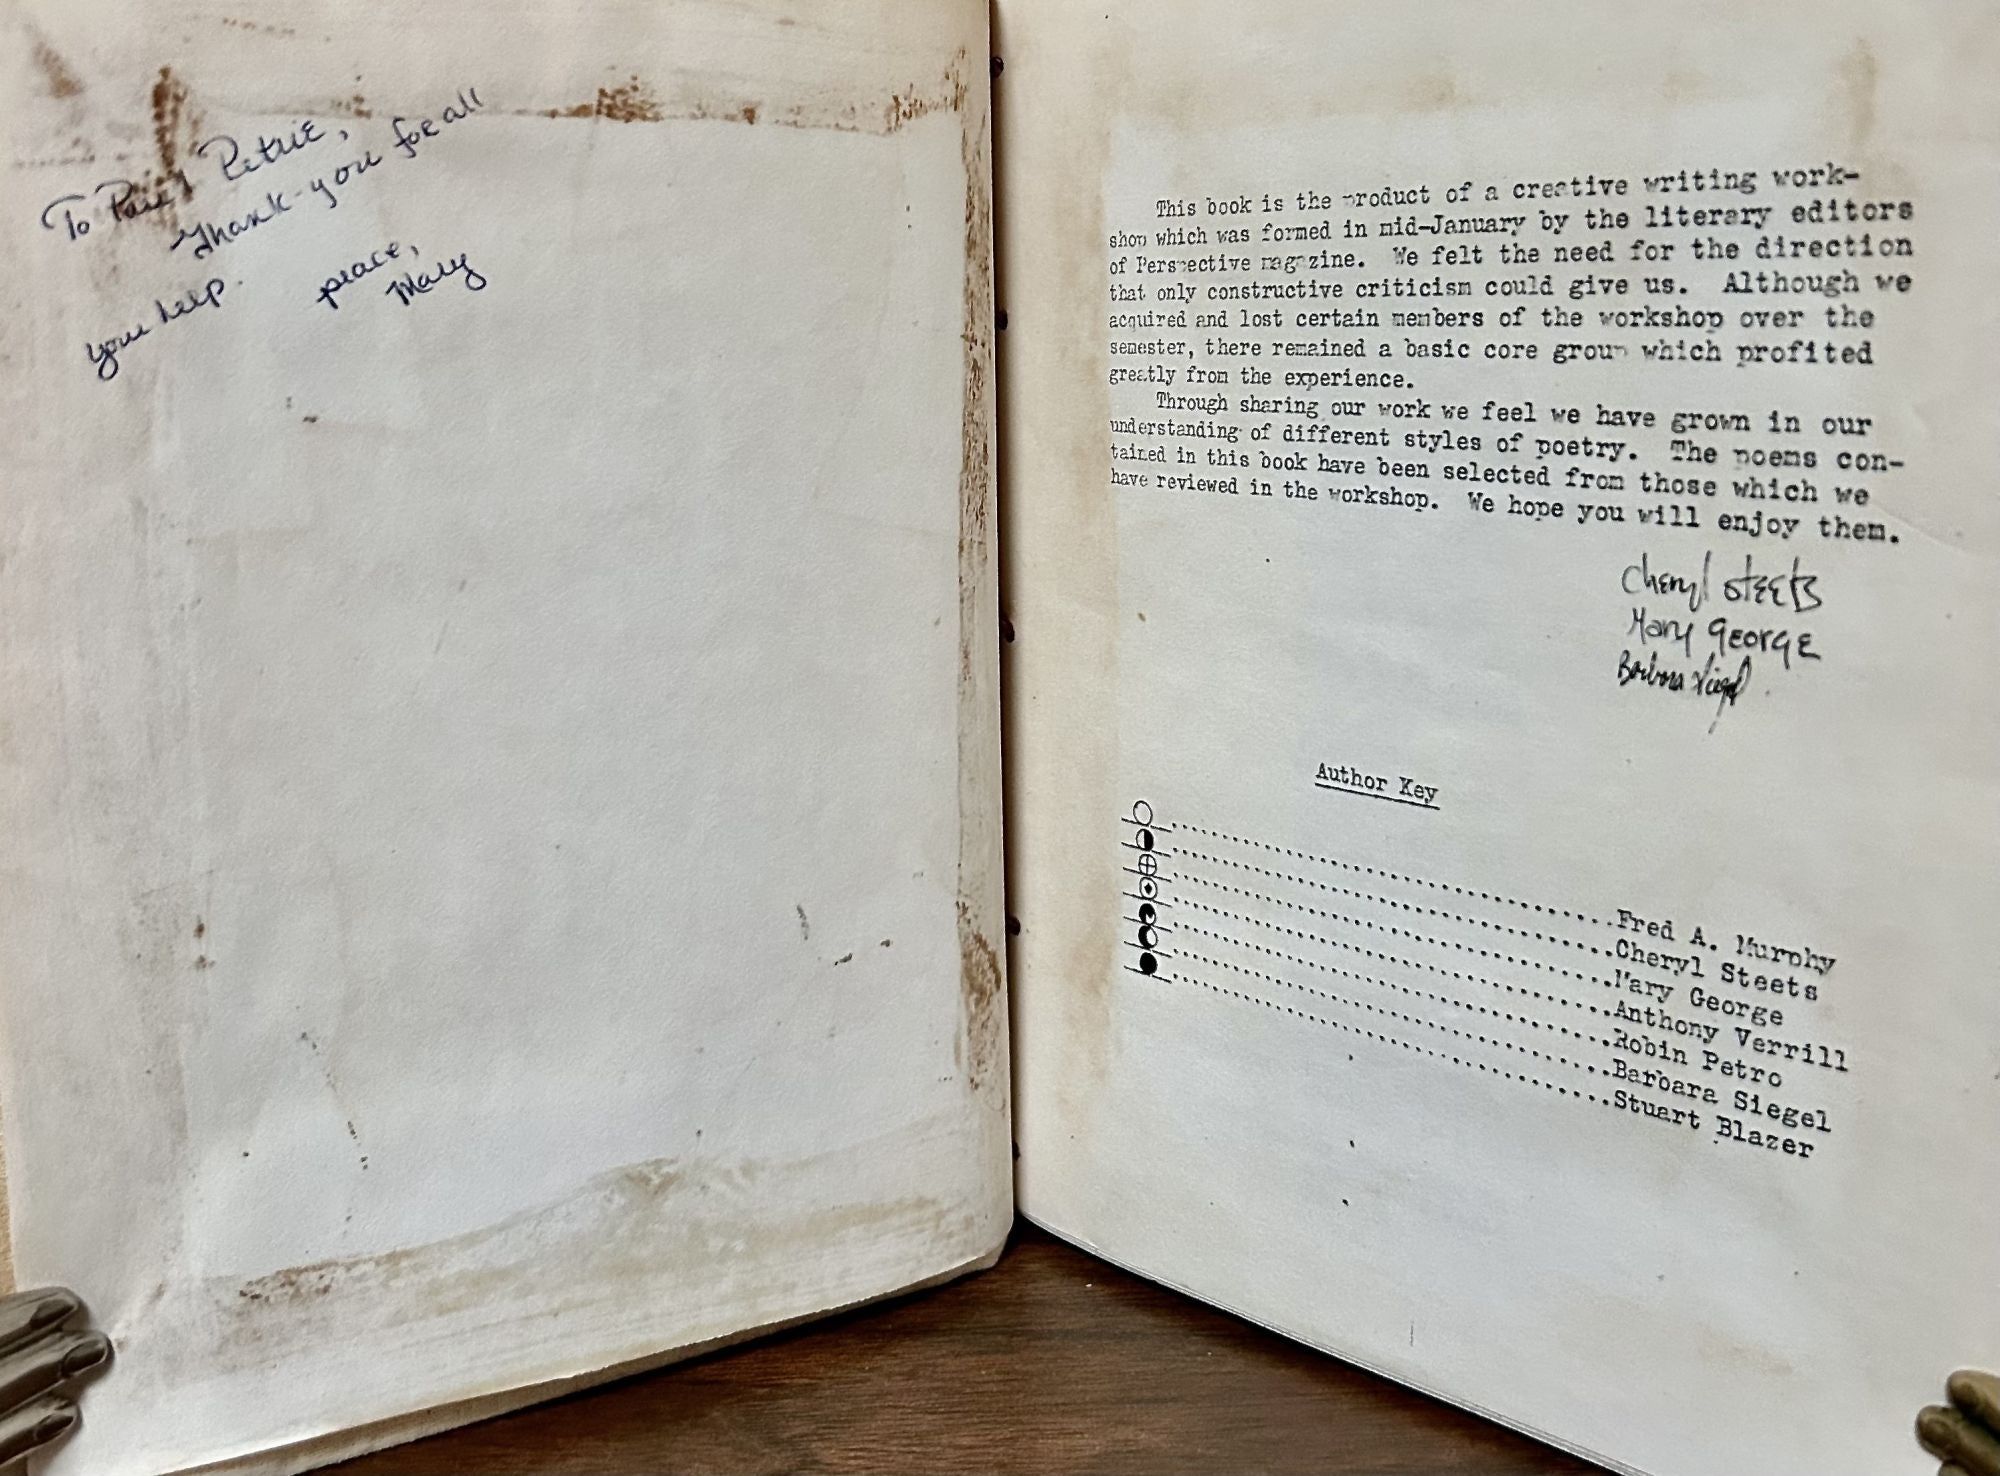 To Paul Petrie,
Thank-you for all
your help.
peace,
Mary
This book is the product of a creative writing work-
shop which was formed in mid-January by the literary editors
of Perspective magazine. We felt the need for the direction
that only constructive criticism could give us. Although we
acquired and lost certain members of the workshop over the
semester, there remained a basic core group which profited
greatly from the experience.
Through sharing our work we feel we have grown in our
understanding of different styles of poetry. The poems con-
tained in this book have been selected from those which we
have reviewed in the workshop. We hope you will enjoy them.
Cheryl Steets
Mary George
Barbara Siegel
Author Key
....................Fred A. Murphy
....................Cheryl Steets
....................Mary George
....................Anthony Verrill
....................Robin Petro
....................Barbara Siegel
....................Stuart Blazer